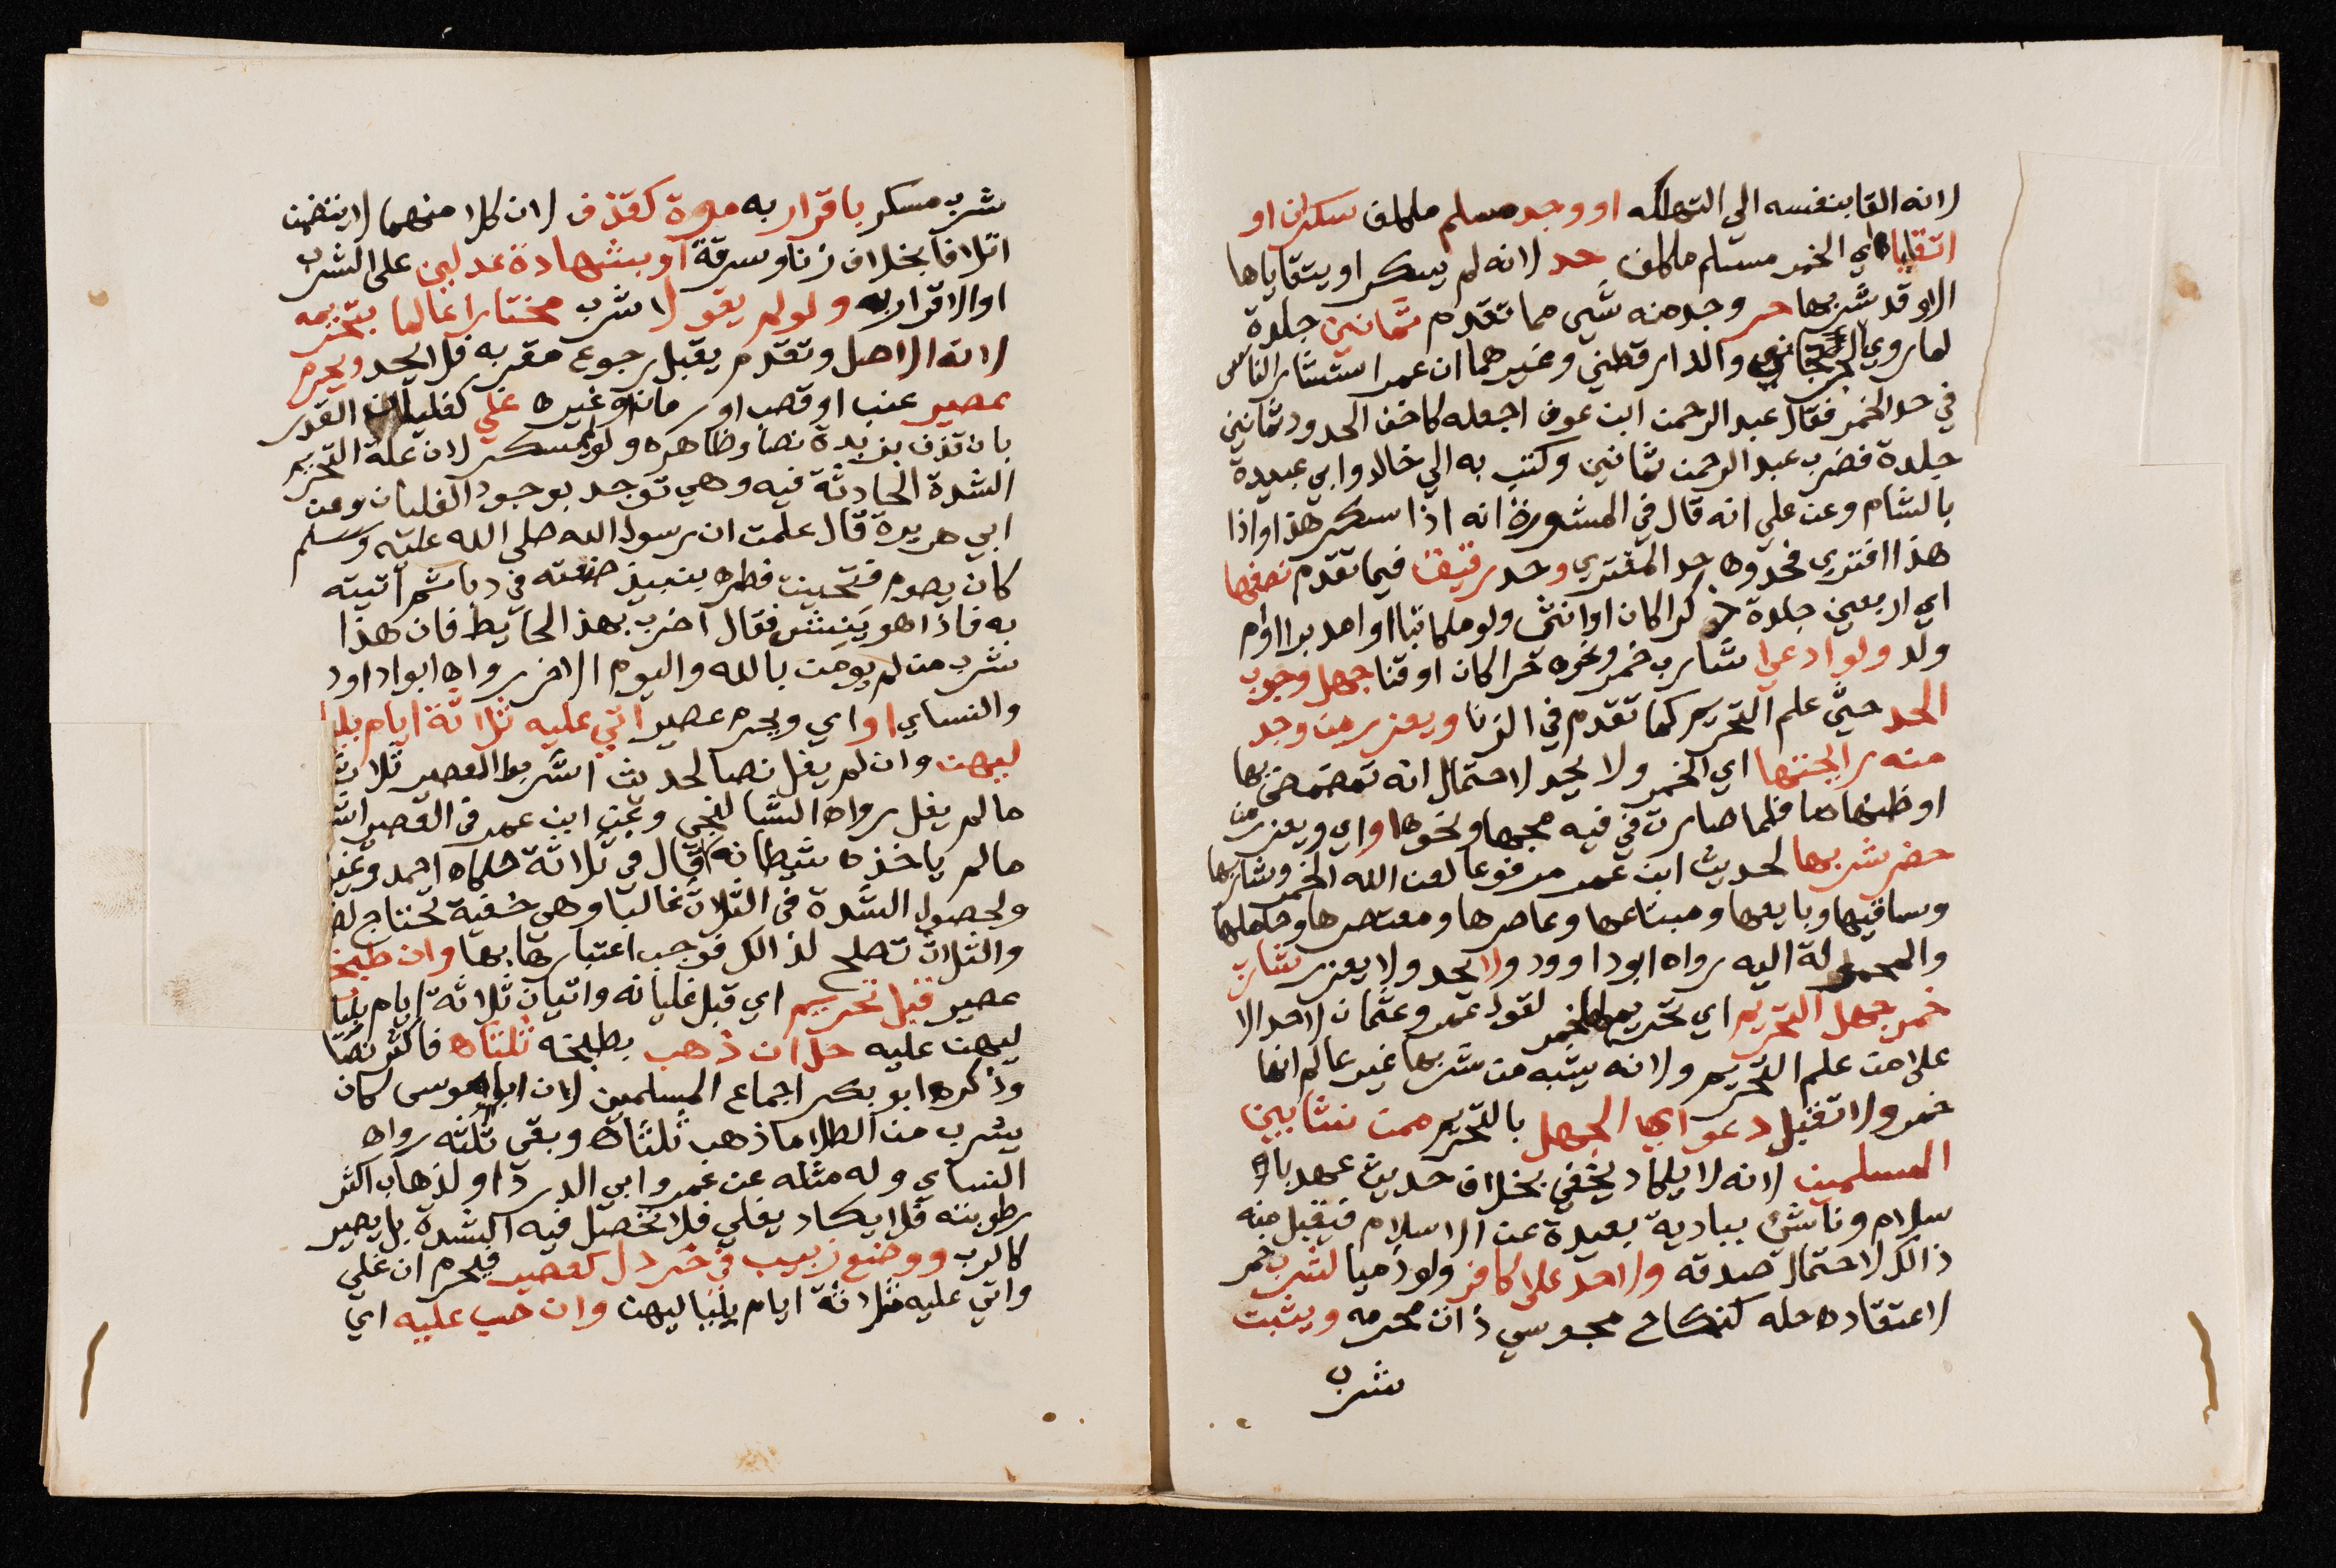 لانه القا بنفسه الي التهلكه او وجد مسلم مكلف سكران او
اتقاياها اي الخمر مسلم مكلف حد لانه لم يسكر او يتقاياها
الا وقد شربها حر وجد منه شي مما تقدم ثمانين جلدة
لما روي الجوزجاني والدارقطني وغيرهما ان عمر استشار الناس
في حد الخمر فقال عبد الرحمن ابن عوف اجعله كاخف الحدود ثمانين
جلدة فضرب عبد الرحمن ثمانين وكتب به الي خالد وابي عبيدة
بالشام وعن علي انه قال في المشورة انه اذا سكر هذا واذا
هذا افتري فحدوه حد المفتري وحد رقيق فيما تقدم نصفها
اي اربعين جلدة ذكرا كان او انثي ولو مكاتبا او مدبرا او ام
ولد ولو ادعي شارب خمر ونحوه حرا كان او قنا جهل وجوب
الحد حيث علم التحريم كما تقدم في الزنا ويعزر من وجد
منه رايحتها اي الخمر ولا يحد لاحتمال انه تمضمض بها
او ظنها ما فلما صارت في فيه مجها ونحوه او اي ويعزر من
حضر شربها لحديث ابن عمر مرفوعا لعن الله الخمر وشاربها
وساقيها وبايعها ومبتاعها وعاصرها ومعتصرها وحاملها
والمحمولة اليه رواه ابو داوود ولا يحد ولا يعزر شارب
خمر جهل التحريم اي تحريم الخمر لقول عمر وعثمان لا حد الا
علي من علم التحريم ولانه يشبه من شربها غير عالم انها
خمر ولا تقبل دعوا اي الجهل بالتحريم ممن نشا بين
المسلمين لانه لا يكاد يخفي بخلاف حديث عهد بالا
سلام وناشئ ببادية بعيدة عن الاسلام فيقبل منه
ذالك لاحتمال صدقه ولا حد علي كافر ولو ذميا لشرب خمر
لاعتقاده حله كنكاح مجوسي ذات محرمه ويثبت
شرب
شرب مسكر باقرار به مرة كقذف لان كلا منهما لا يتضمن
اتلافا بخلاف زنا وسرقة او بشهادة عدلين علي الشرب
او الاقرار به ولو لم يقولا شرب مختارا عالما بتحريمه
لانه الاصل وتقدم يقبل رجوع مقر به فلا يحد ويحرم
عصير عنب او قصب او رمان او غيره غلي كغليان القدر
بان قذف بزبده نصا وظاهره ولو لم يسكر لان علة التحريم
الشدة الحادثة فيه وهي توجد بوجود الغليان وعن
ابي هريرة قال علمت ان رسول الله صلي الله عليه وسلم
كان يصوم فتحينت فطره بنبيذ صنعته في دبا ثم اتيته
به فاذا هو ينش فقال اضرب بهذا الحايط فان هذا
شرب من لم يومن بالله واليوم الاخر رواه ابوا داود
والنساي او اي ويحرم عصير اتي عليه ثلاثة ايام بليا
ليهن وان لم يغل نصا لحديث اشربوا العصير ثلاثا
ما لم يغل رواه الشالنجي وعن ابن عمر في العصير اشر
ما لم ياخذه شيطانه قال في ثلاثة حكاه احمد وغير
ولحصول الشدة في الثلاث غالبا وهي خفية تحتاج لضا
والثلاث تصلح لذالك فوجب اعتبارها بها وان طبخ
عصير قبل تحريم اي قبل غليانه واتيان ثلاثة ايام بليا
ليهن عليه حل ان ذهب بطبخه ثلثاه فاكثر نصا
وذكره ابو بكر اجماع المسلمين لان ابا موسي كان
يشرب من الطلا ما ذهب ثلثاه وبقي ثلثه رواه
النساي وله مثله عن عمر وابي الدردا ولذهاب اكثر
رطوبته فلا يكاد يغلي فلا تحصل فيه الشدة بل يصير
كالرب ووضع زبيب في خردل كعصير فيحرم ان غلي
واتي عليه ثلاثة ايام بلياليهن وان صب عليه اي